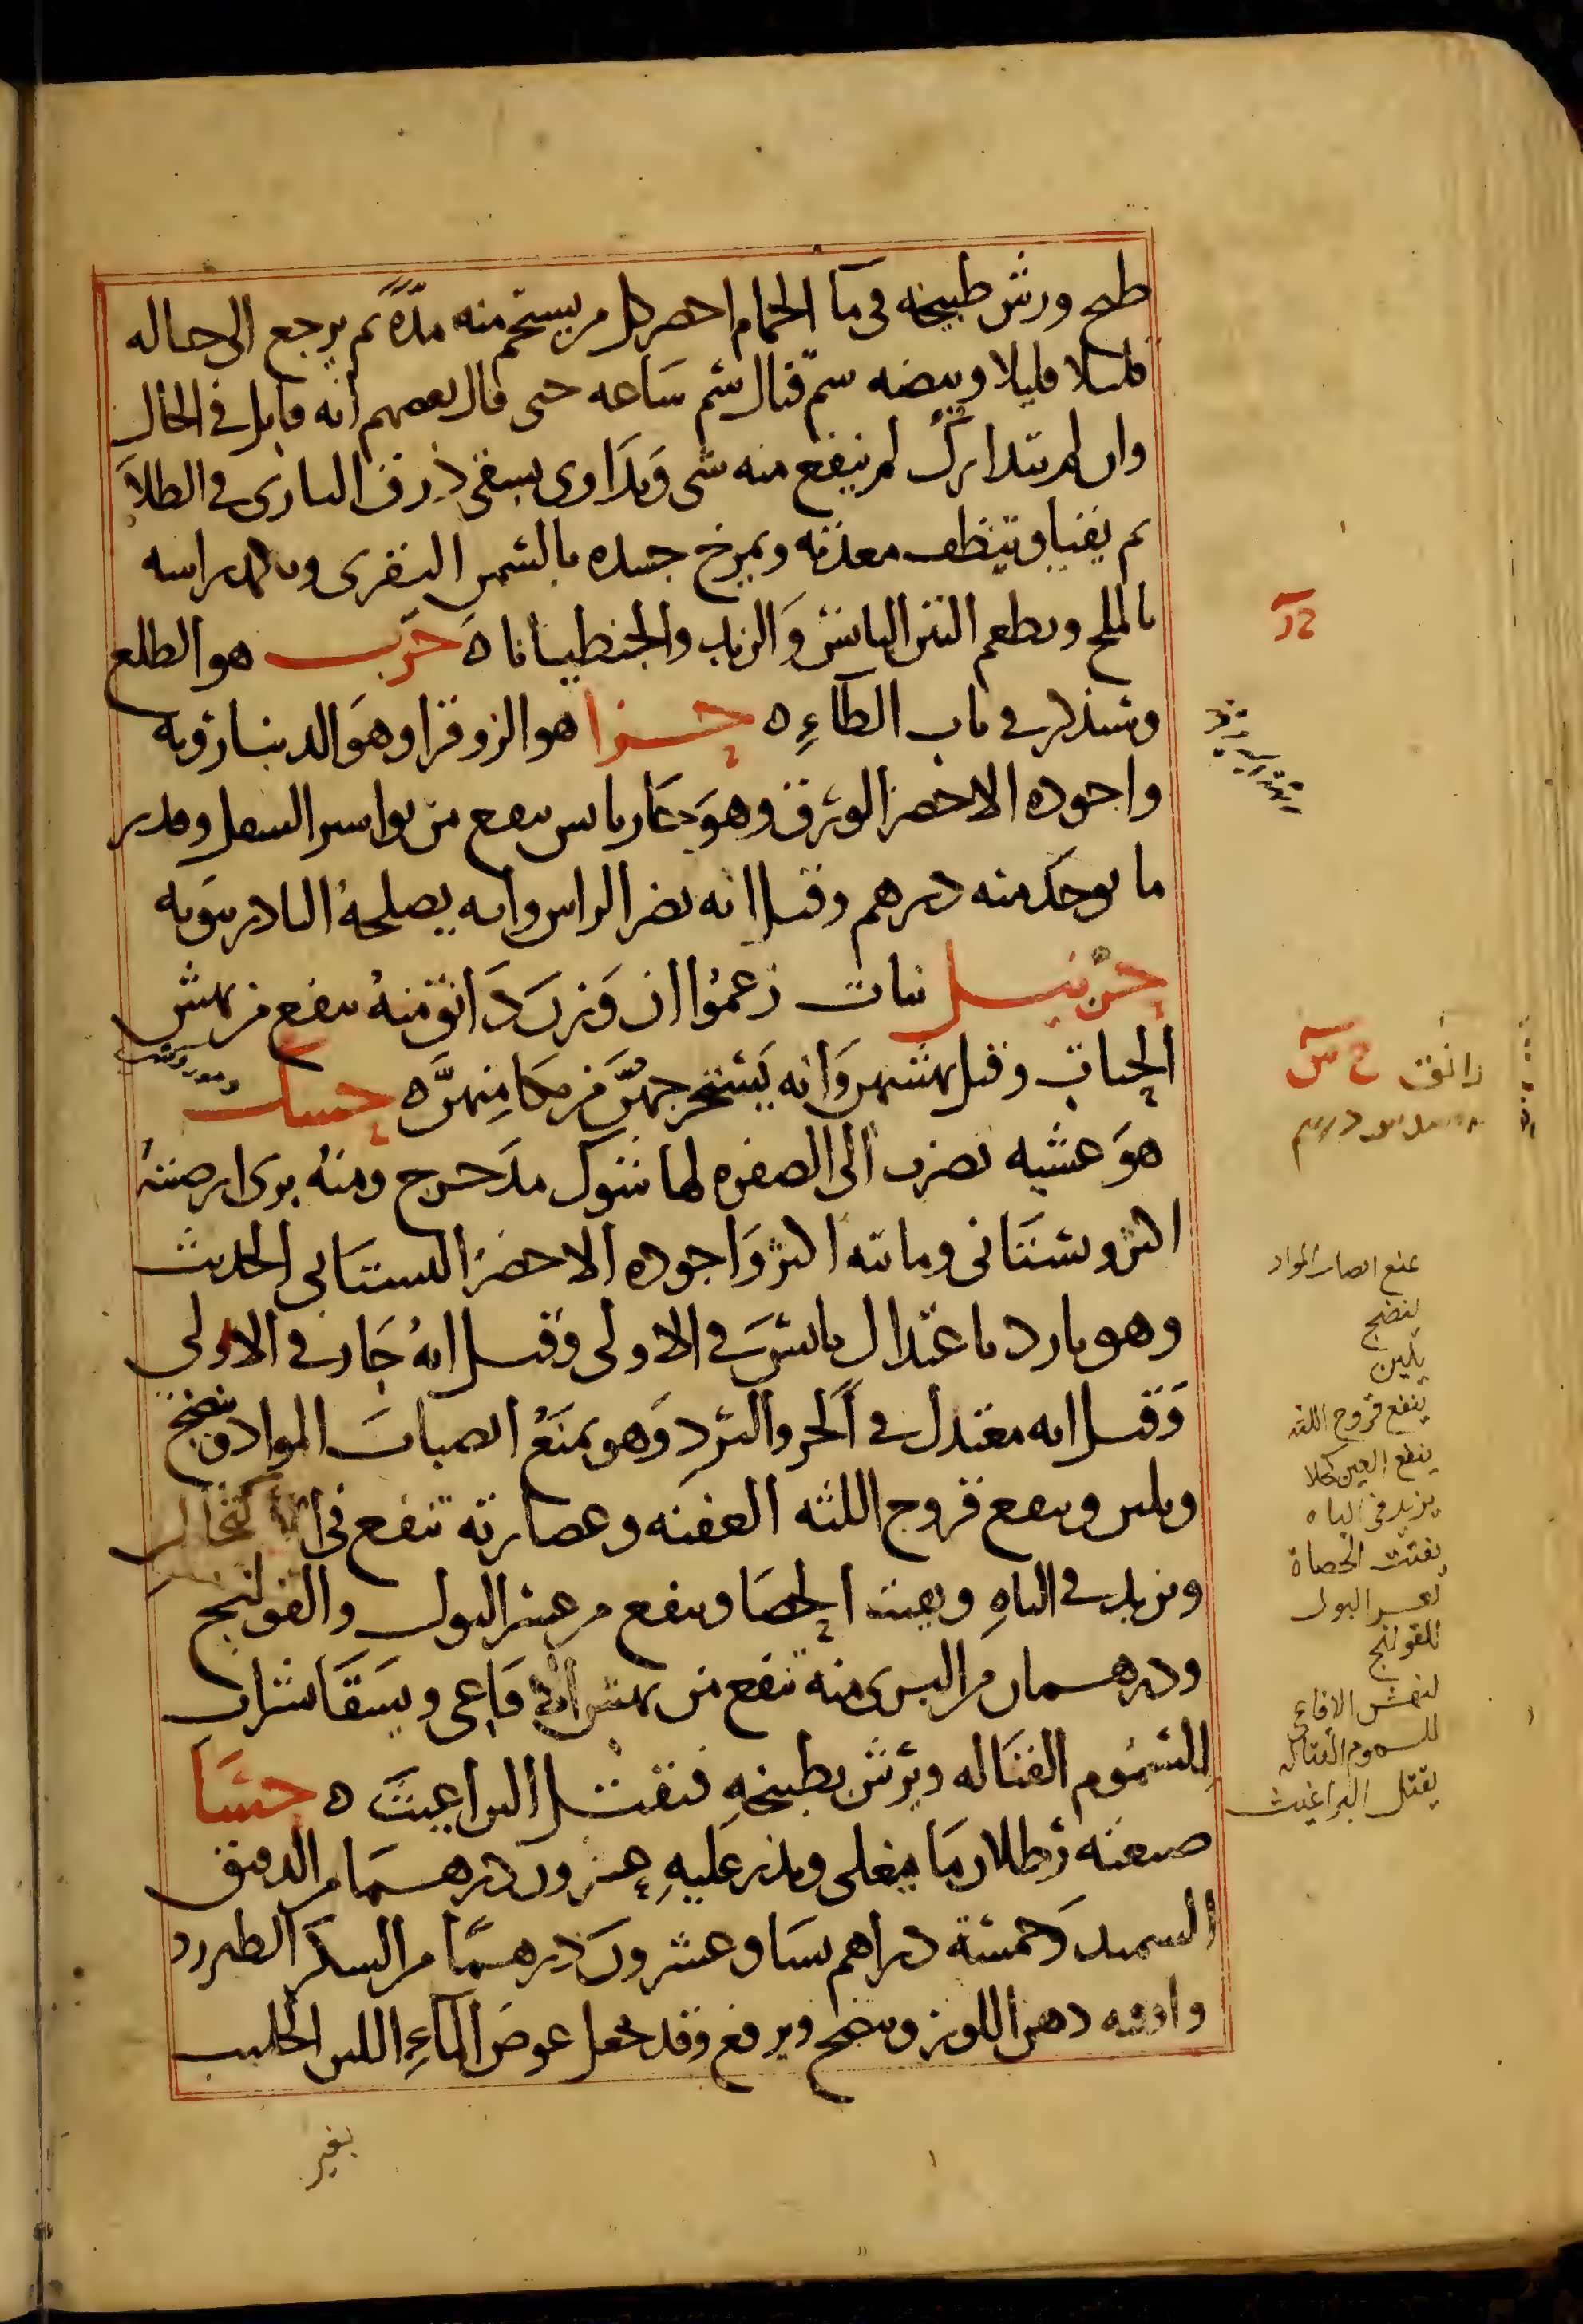 طبخ ورش طبيخه في ما الحمام احضر كل من يستحم منه مدة ثم يرجع الى حاله
قليلا قليلا وبيضه سم قتال سم ساعه حتى قال بعضهم انه قاتل في الحال
وان لم يتدارك لم ينفع منه شي ويداوى بسقي ذرق البازي في الطلا
ثم يتقيا وينظف معدته ويمرخ جسده بالسمن البقري ويكمد راسه
بالملح ويطعم التين اليابس والزبد والجنطيانا ه حرب هو الطلع
وسنذكر في باب الطاء ه حزا هو الزوفرا وهو الدينارويه
واجوده الاخضر الورق وهو حار يابس ينفع من بواسير السفل وقدر
ما يوخذ منه درهم وقيل انه يضر الراس وانه يصلحه البادرنبويه
حزنبل نبات زعموا ان وزن دانق منه ينفع من نهش
الحيات وقبل نهشهن وانه يستخرجهن من مكامنهن ه حسك
هو عشبه تضرب الى الصفره لها شوك مدحرج ومنه بري ارضيته
اكثر وبستاني ومائيته اكثر واجوده الاخضر البستاني الحديث
وهو بارد باعتدال يابس في الاولى وقيل انه حار في الاولى
وقيل انه معتدل في الحر والبرد وهو يمنع انصباب المواد وينضج
ويلين وينفع قروح اللثه العفنه وعصارته تنفع في الاكتحال
ويزيد في الباه ويفتت الحصا وينفع من عسر البول والقولنج
ودرهمان من البري منه تنفع من نهش الافاعي ويسقا بشراب
للسموم القتاله ويرش بطبيخه فيقتل البراغيث ه حسا
صنعته رطلان ما يغلى ويذر عليه عشرون درهما من الدقيق
السميد وخمسة دراهم نشا وعشرون درهما من السكر الطبرزد
واوقيه دهن اللوز وينضج ويرفع وقد يجعل عوض الماء اللبن الحليب
بغير
دانق ح س
يمنع انصباب المواد
ينضج
يلين
ينفع قروح اللثه
ينفع العين كحلا
يزيد في الباه
يفتت الحصاة
لعسر البول
للقولنج
لنهش الافاعي
للسموم القتاله
يقتل البراغيث